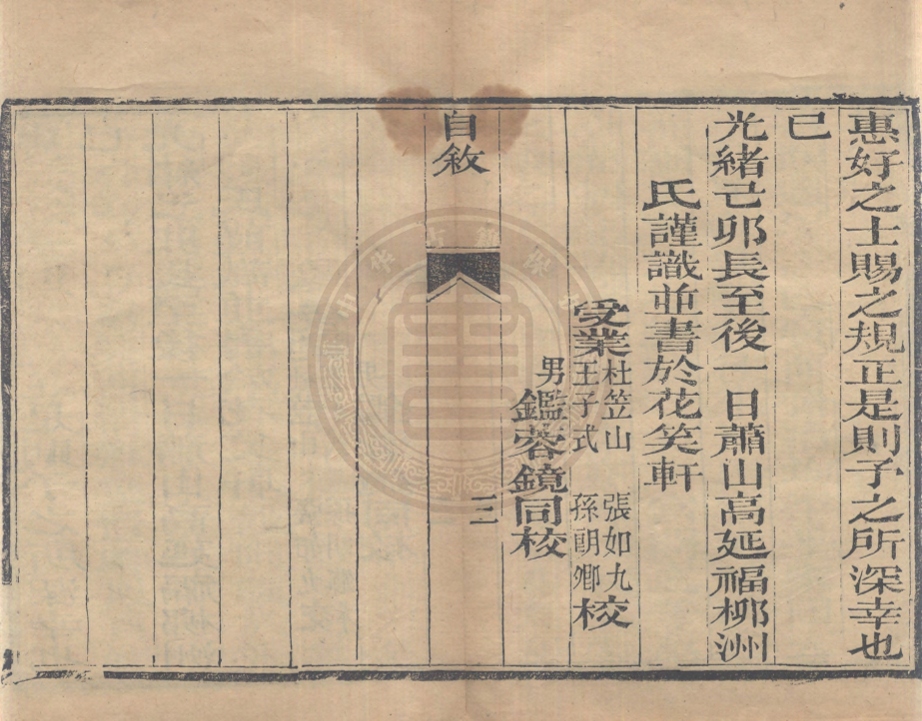 惠好之士賜之規正是則予之所深幸也
已
光緒己卯長至後一日蕭山高延福栁洲
氏謹識並書於花笑軒
受業杜笠山 張如九
王子式 孫朗卿校
男鑑蓉鏡同校
自敘
三